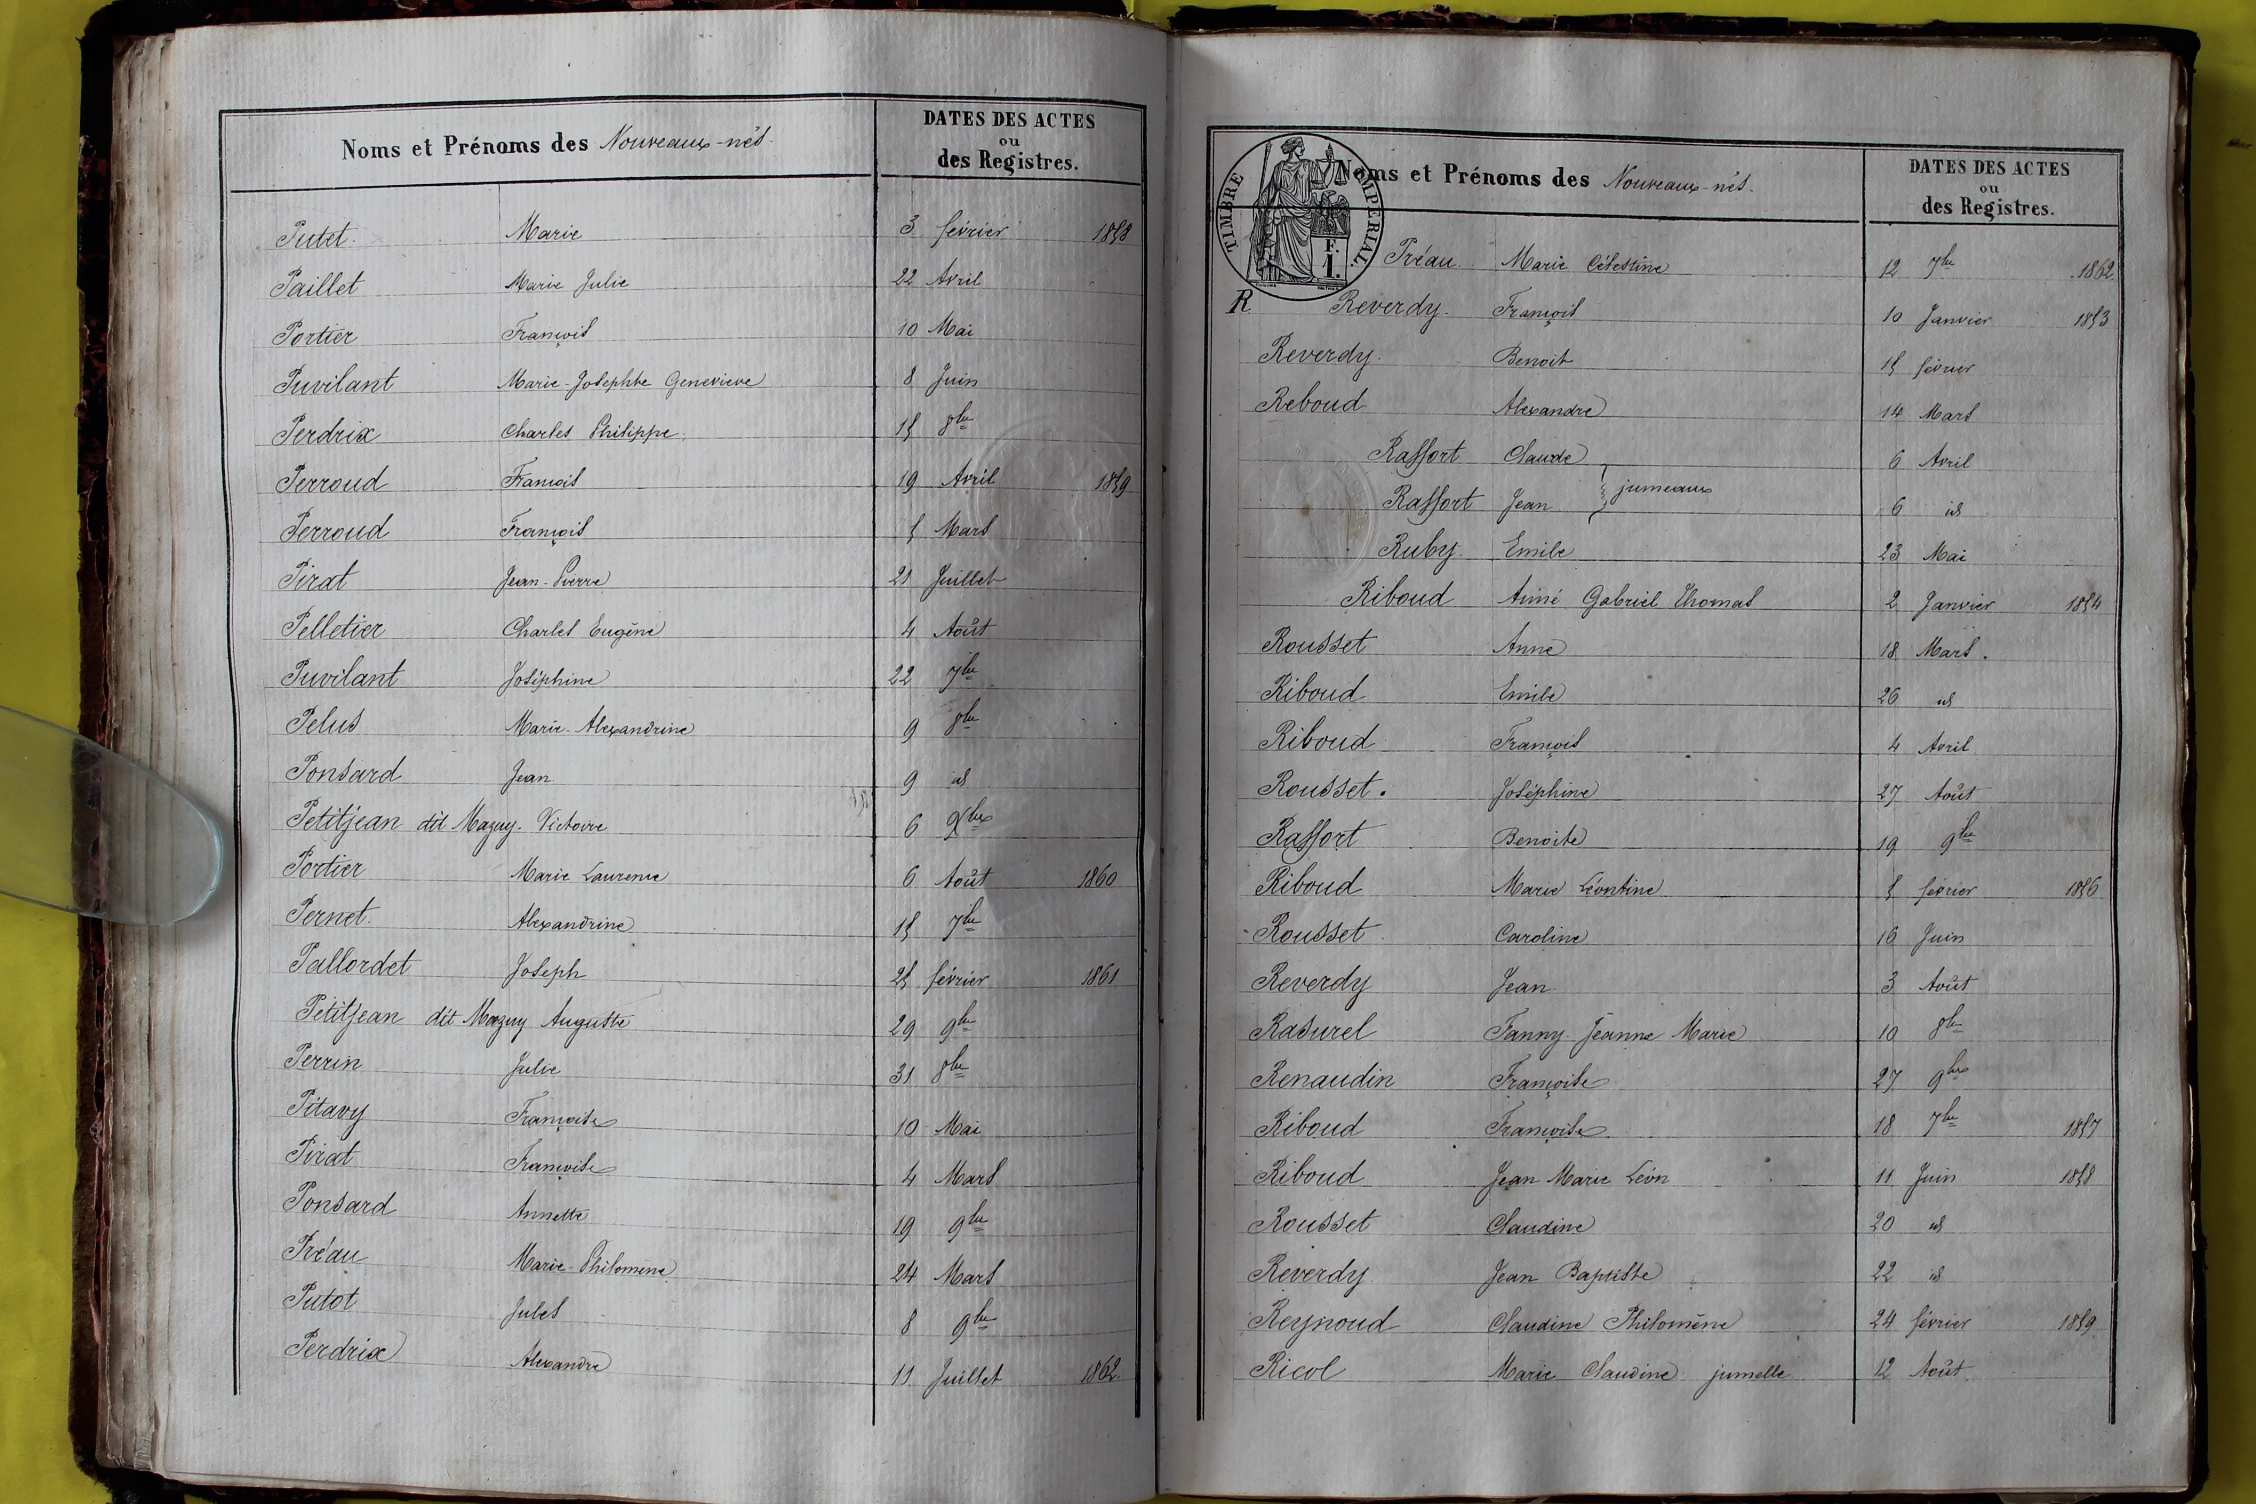 Noms et Prénoms des Nouveaux-nés.
DATES DES ACTES
ou
des Registres.
Putet. Marie 3 février 1858
Paillet Marie Julie 22 Avril
Portier François 10 Mai
Puvilant Marie-Josephte Genevieve 8 Juin
Perdrix Charles Philippe. 15 8bre
Perroud François 19 Avril 1859
Perroud François 5 Mars
Pirat Jean-Pierre 21 Juillet
Pelletier Charles Eugène 4 Août
Puvilant Joséphine 22 7bre
Pelus Marie-Alexandrine 9 8bre
Ponsard Jean 9 id
Petitjean dit Mazuy. Victoire 6 Xbre
Portier Marie Laurence 6 Août 1860
Pernet. Alexandrine 15 7bre
Pallordet Joseph 25 février 1861
Petitjean dit Mazuy Auguste 29 9bre
Perrin Julie 31 8bre
Pitavy Françoise 10 Mai
Pirat Françoise 4 Mars
Ponsard Annette 19 9bre
Préau Marie-Philomène 24 Mars
Putot Jules 8 9bre
Perdrix Alexandre 11 Juillet 1862.
TIMBRE IMPERIAL.
F.
1.
Noms et Prénoms des Nouveaux-nés.
DATES DES ACTES
ou
des Registres.
Préau. Marie Célestine 12 7bre 1862
R. Reverdy. François 10 Janvier 1853
Reverdy. Benoit 15 février
Reboud Alexandre 14 Mars
Raffort Claude 6 Avril
jumeaux
Raffort Jean 6 id
Ruby. Emile 23 Mai
Riboud Aimé Gabriel Thomas 2 Janvier 1854
Rousset Anne 18 Mars.
Riboud Emile 26 id
Riboud François 4 Avril
Rousset. Joséphine 27 Août
Raffort Benoite 19 9bre
Riboud Marie Léontine 5 février 1856
Rousset Caroline 16 Juin
Reverdy Jean 3 Août
Rasurel Fanny Jeanne Marie 10 8bre
Renaudin Françoise 27 9bre
Riboud Françoise 18 7bre 1857
Riboud Jean Marie Léon 11 Juin 1858
Rousset Claudine 20 id
Reverdy Jean Baptiste 22 id
Reynoud Claudine Philomène 24 février 1859
Ricol Marie Claudine jumelle 12 Août